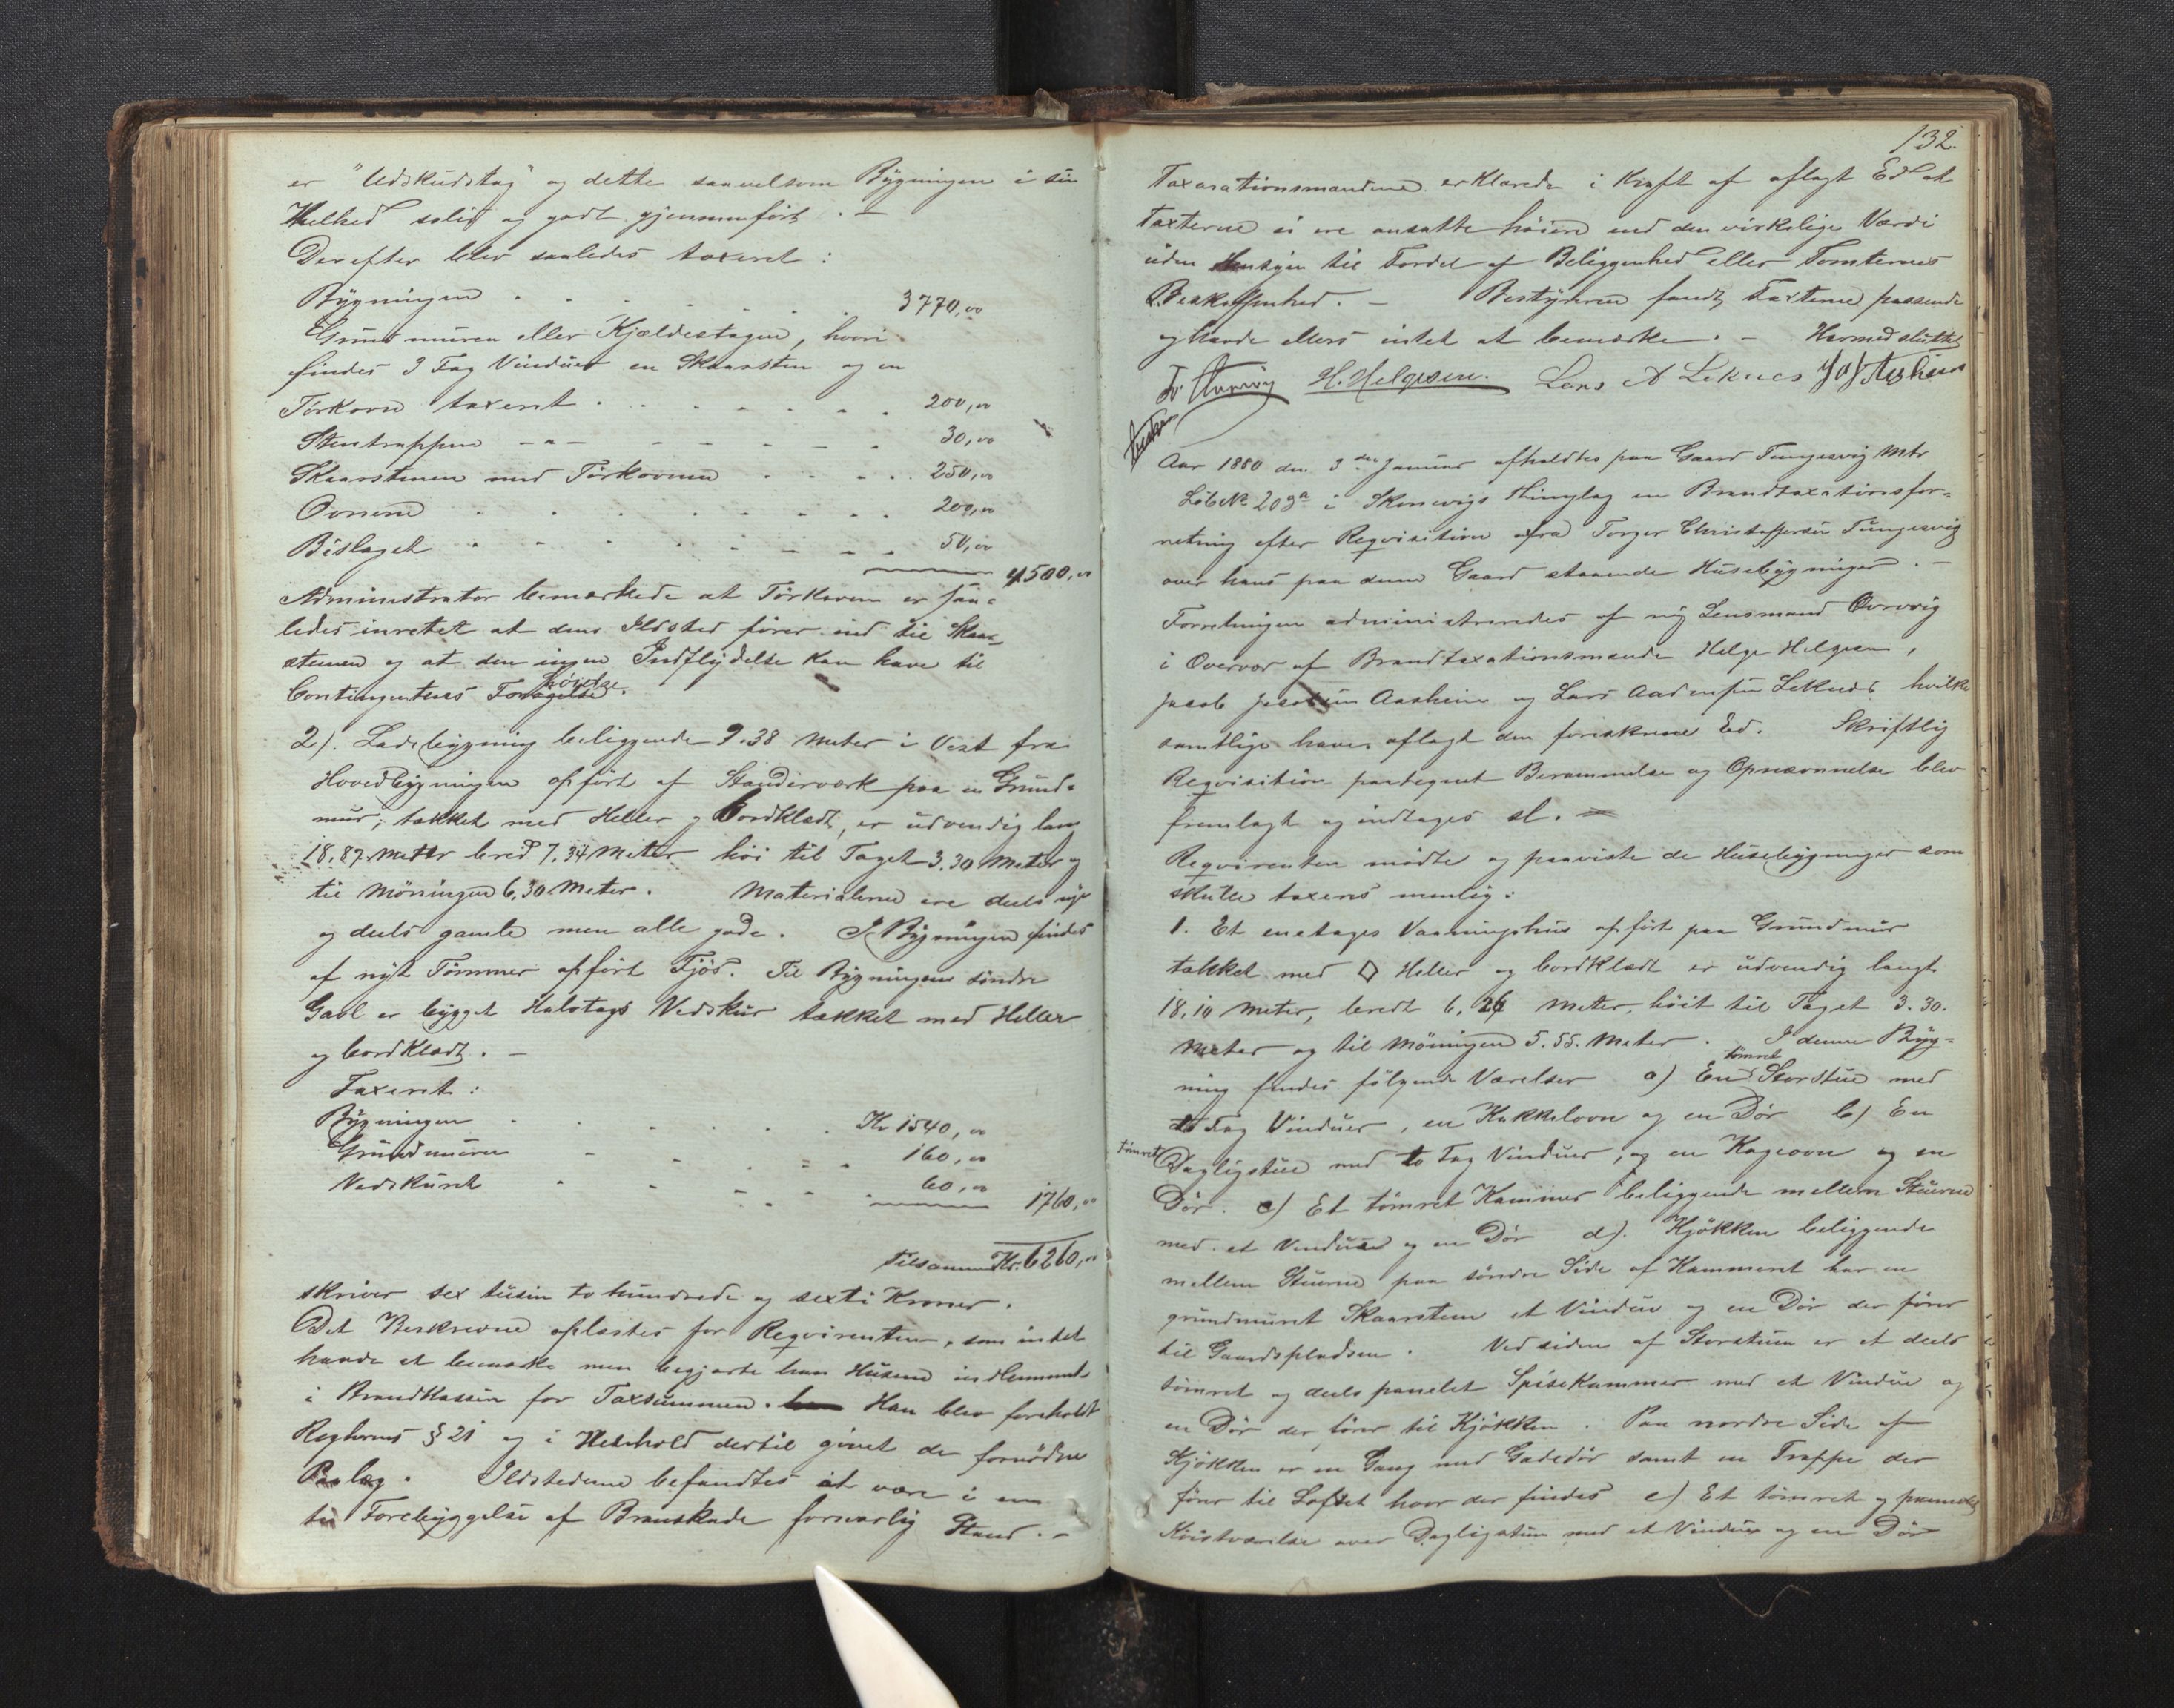 er "Udskudstag" og dette saavelsom Bygningen i sin
Helhed solid og godt gjennemført. –
Derefter blev saaledes taxeret:
Bygningen . . . . . 3770,00
Grundmuren eller Kjældestagen, hvori
findes 3 Fag Vinduer en Skaarsten og en
Törkovn taxeret . . . . . . . 200,00
Stentrappen – " – – – – – . 30,00
Skaarstenen med Törkovnen . . . . . 250,00
Ovnene . . . . . . . . 200,00
Bislaget . . . . . . . . 50,00
4500,00
Administrator bemærkede at Törkovnen er saa=
ledes inrettet at dens Ildsted fører ind til Skaar=
stenen og at den ingen Indflydelse kan have til
Contingentens Forhöielse.
2). Ladebygning beliggende 9.38 Meter i Vest fra
Hovedbygningen opfört af Standerværk paa en Grund=
mur, tækket med Heller og bordklædt, er udvendig lang
18,87 Meter bred 7,34 Meter höi til Taget 3.30 Meter og
til Möningen 6,30 Meter. Materialerne ere dels nye
og dels gamle men alle gode. I Bygningen findes
af nyt Tömmer opfört Fjös. Til Bygningens söndre
Gavl er bygget Halvtags Vedskur tækket med Heller
og bordklædt. –
Taxeret:
Bygningen . . . . . Kr 1540,00
Grundmuren . . . . . 160,00
Vedskuret . . . . . . 60,00
1760,00
Tilsammen Kr. 6260,00
skriver sex tusin to hundrede og sexti Kroner.
Det Beskrevne oplæstes for Reqvirenten, som intet
havde at bemærke men begjærte han Husene indlemmet
i Brandkassen for Taxsummen. Han blev foreholdt
Reglernes § 21 og i Henhold dertil givet de fornödne
Paalæg. Ildstederne befandtes at være i en
til Forebyggelse af Branskade forsvarlig Stand. –
132.
Taxarationsmændene erklærede i Kraft af aflagt Ed at
Taxterne ei ere ansatte höiere end den virkelige Værdi
uden Hensyn til Fordel af Beliggenhed eller Tomternes
Beskaffenhed. – Bestyreren fandt Taxterne passende
og havde ellers intet at bemærke. – Hermed sluttet
H. Helgesen. Lars A Leknes
Aar 1880 den 3die Januar afholdtes paa Gaard Tungesvig Mtr
Löbe No 203a i Skonevigs Thinglag en Brandtaxationsfor=
retning efter Reqvisition fra Torger Christoffersen Tungesvig
over hans paa denne Gaard staaende Husebygninger. –
Forretningen administreredes af mig Lensmand
i Overvær af Brandtaxationsmænde Helge Helgesen,
Jacob Jacobsen Aasheim og Lars Aadensen Leknes hvilke
samtlige have aflagt den foreskrevne Ed. Skriftlig
Reqvisition paategnet Berammelse og Opnævnnelse blev
fremlagt og indtages sl. –
Reqvirenten mödte og paaviste de Husebygninger som
skulle taxeres nemlig:
1. Et enetages Vaaningshus opfört paa Grundmur
tækket med ◇ Heller og bordklædt er udvendig langt
18,10 Meter, bredt 6,24 Meter, höit til Taget 3.30.
Meter og til Möningen 5.55. Meter. I denne Byg=
ning findes fölgende Værelser a) En tömret Storstue med
to Fag Vinduer, en Kakkelovn og en Dör b) En
tömret Dagligstue med to Fag Vinduer, og en Kogeovn og en
Dör. c) Et tömret Kammer beliggende mellem Stuerne
med et Vindue og en Dör d). Kjökken beliggende
mellem Stuerne paa söndre Side af Kammeret har en
grundmuret Skaarsten et Vindue og en Dör der förer
til Gaardspladsen. Ved siden af Storstuen er et dels
tömret og dels panelet Spisekammer med et Vindue og
en Dör der förer til Kjökken. Paa nordre Side af
Kjökken er en Gang med Gadedör samt en Trappe der
förer til Loftet hvor der findes e) Et tömret og panelet
Kvistværelse over Dagligstuen med et Vindue og en Dör